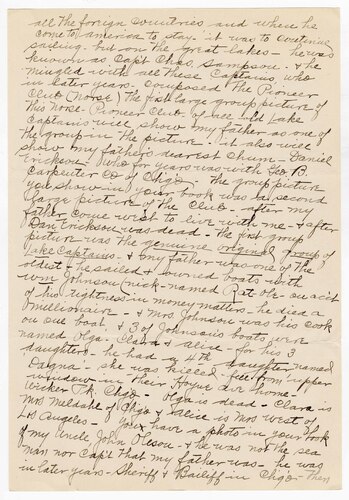 all the foreign countries and when he
come to america to stay it was to continue
sailing - but on the great lakes - he was
known as Capt Chas. Sampson. & he
mingled with all these Captains, who
in later years composed the Pioneer
Club (Norse) The first large group picture of
this Norse Pioneer Club of all old Lake
Captains will show my father as one of
the group in the picture - it also will
show my father's dearest chum - Daniel
Erickson - who for years was with Geo. B.
Carpenter Co of Chgo - the group picture
you show in your book was a second
large picture of the Club - after my
father come west to live with me - & after
Dan Erickson was dead - the first group
picture was the genuine original group of
Lake Captains - & my father was one of the
oldest - he sailed & owned boats with
Wm Johnson (nick-named Rat Ole - on acct
of his tightness in money matters - he died a
millionaire - & Mrs Johnson was his cook
on one boat, & 3 of Johnson's boats were
named Olga - Clara & Alice - for his 3
daughters - he had a 4th daughter named
Dagna - she was killed fell from upper
window in their Hoyne Ave home -
Wicker Pk. Chgo - Olga is dead - Clara is
Mrs of Chgo & Alice is Mrs West of
Los Angeles - You have a photo in your book
of my Uncle John Oleson - & he was not the sea
man nor Cap't that my father was - he was
in later years - Sheriff & Bailiff in Chgo - Then